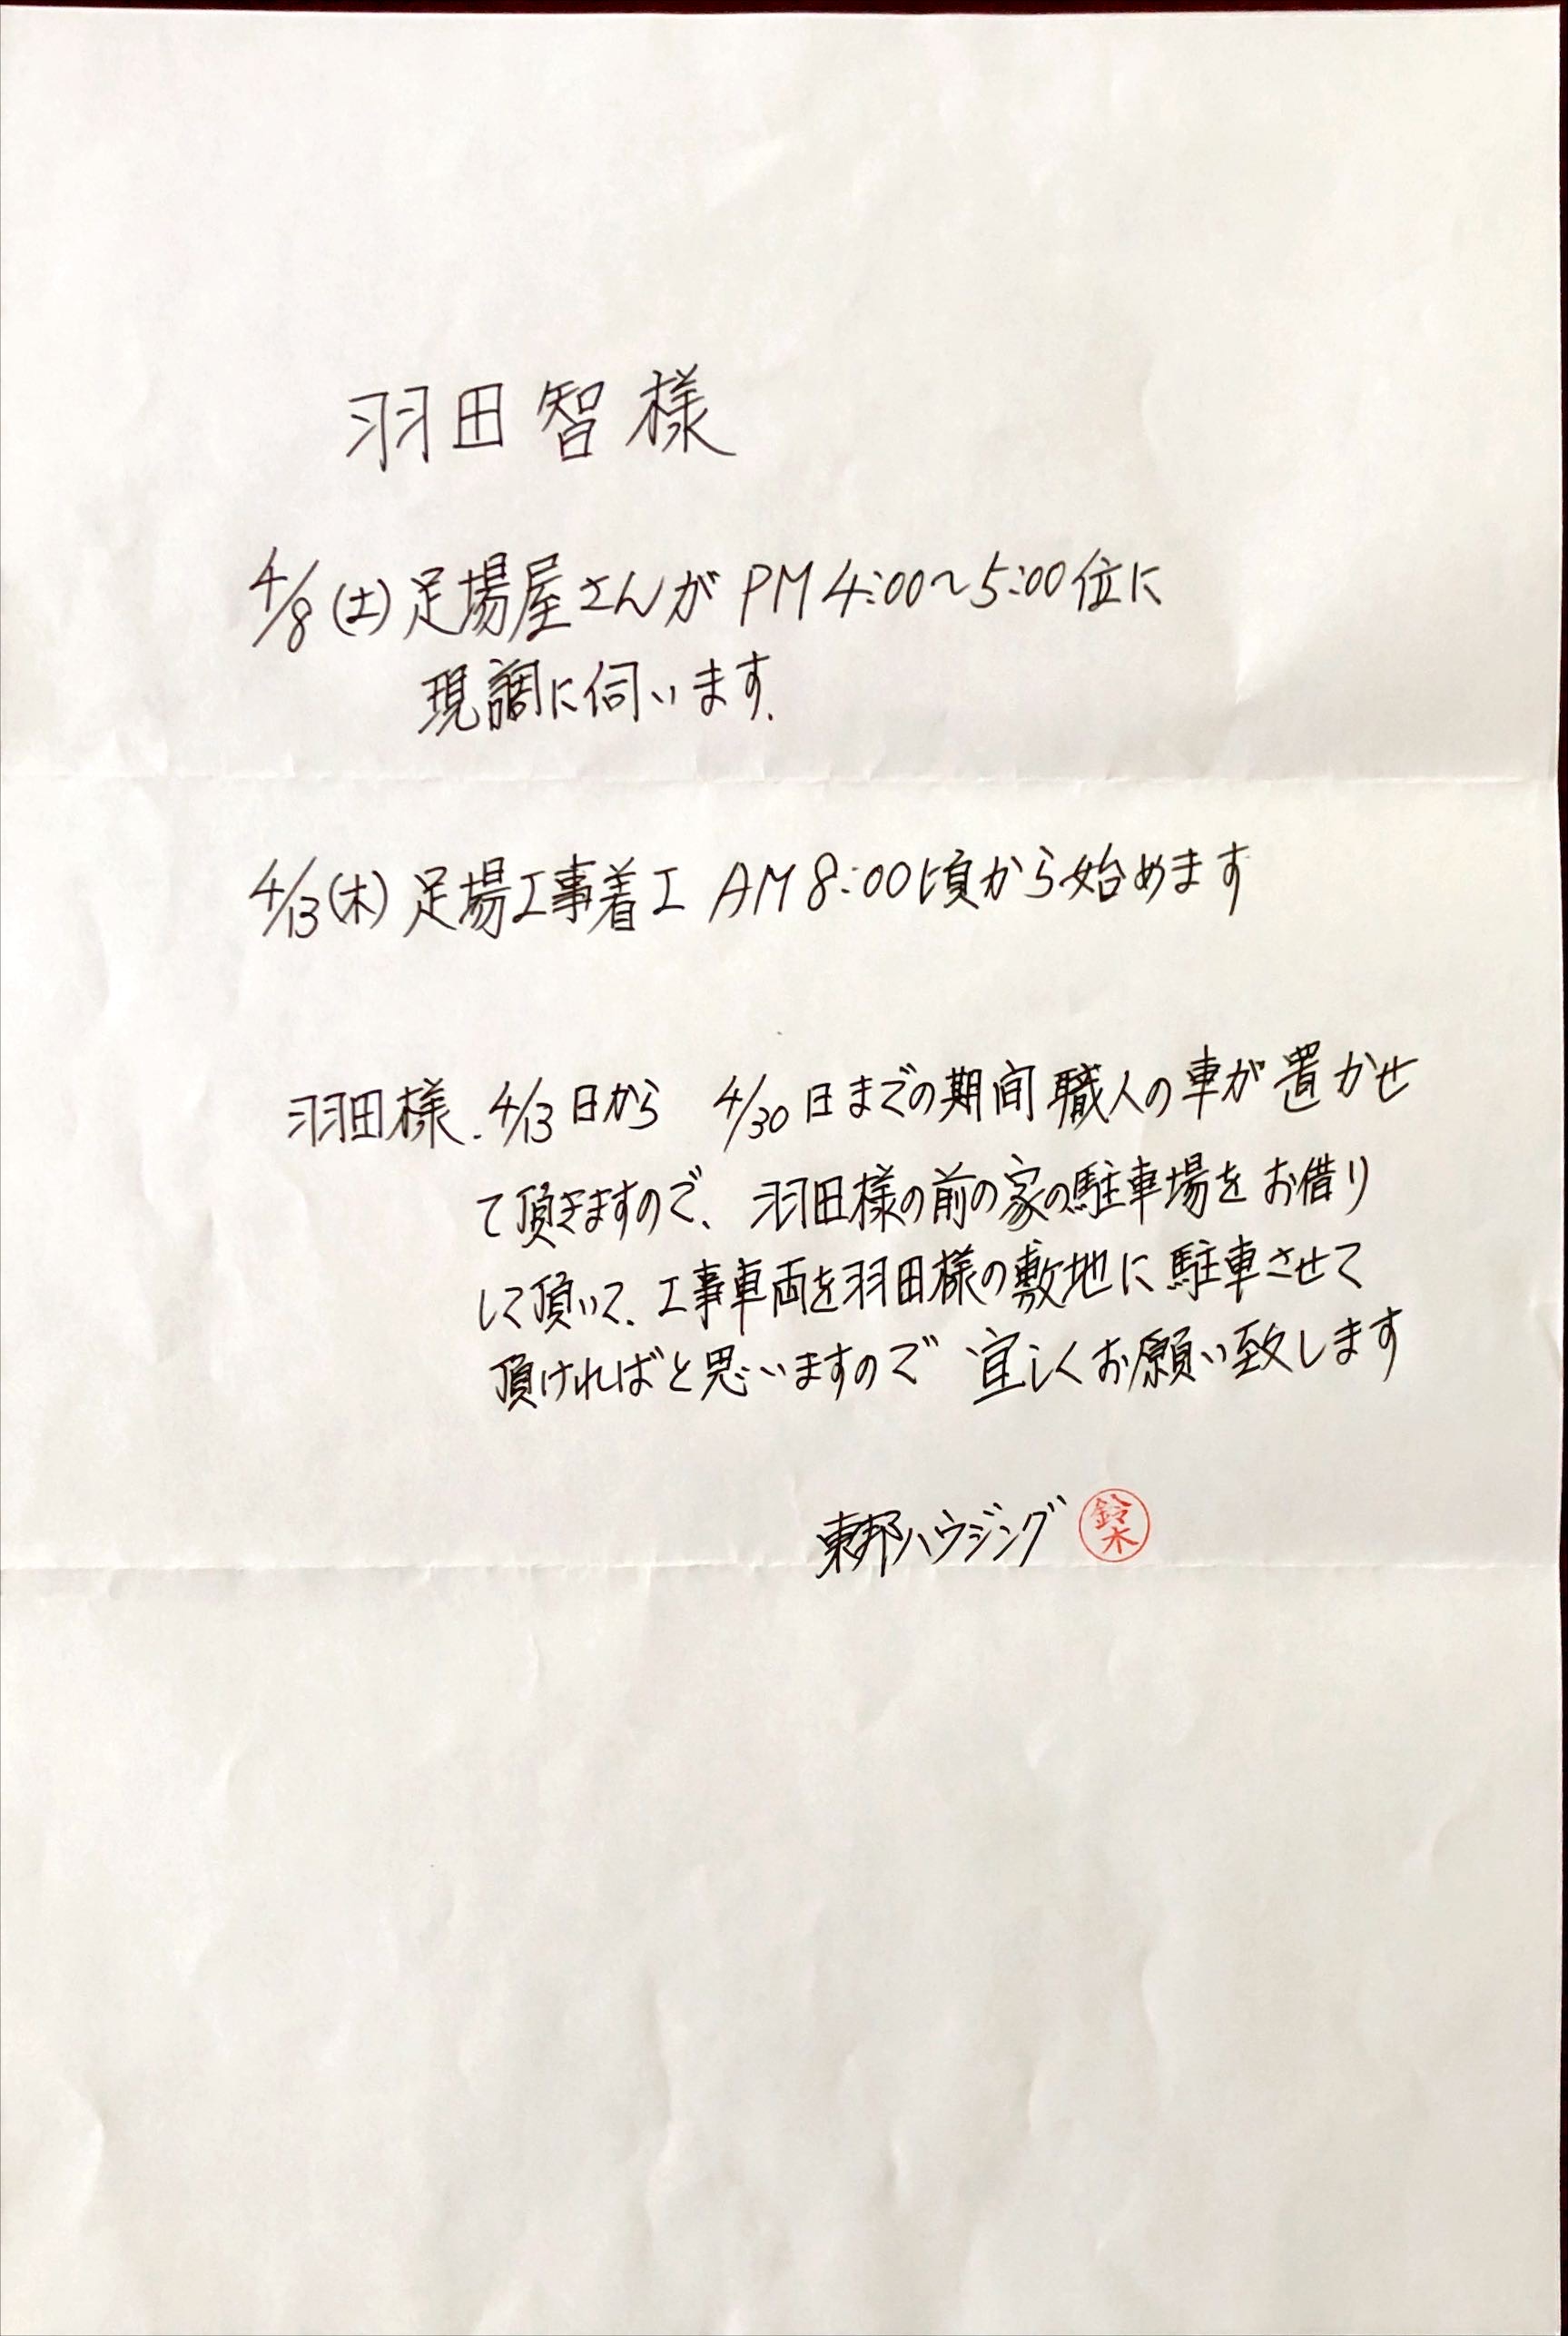 羽田智様
4/8(土)足場屋さんがPM4:00~5:00位に
現調に伺います.
4/13(木)足場工事着工 AM8:00頃から始めます
羽田様.4/13日から 4/30日までの期間職人の車が置かせ
て頂きますので、羽田様の前の家の駐車場をお借り
して頂いて、工事車両を羽田様の敷地に駐車させて
頂ければと思いますので 宜しくお願い致します
東邦ハウジング 鈴木